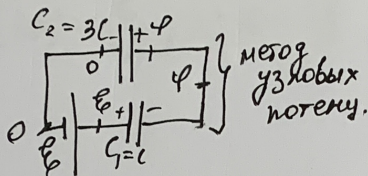 C₂ = 3C - + φ
0
φ
метод
узловых
потенц.
0
ℰ
ℰ + -
C₁=C